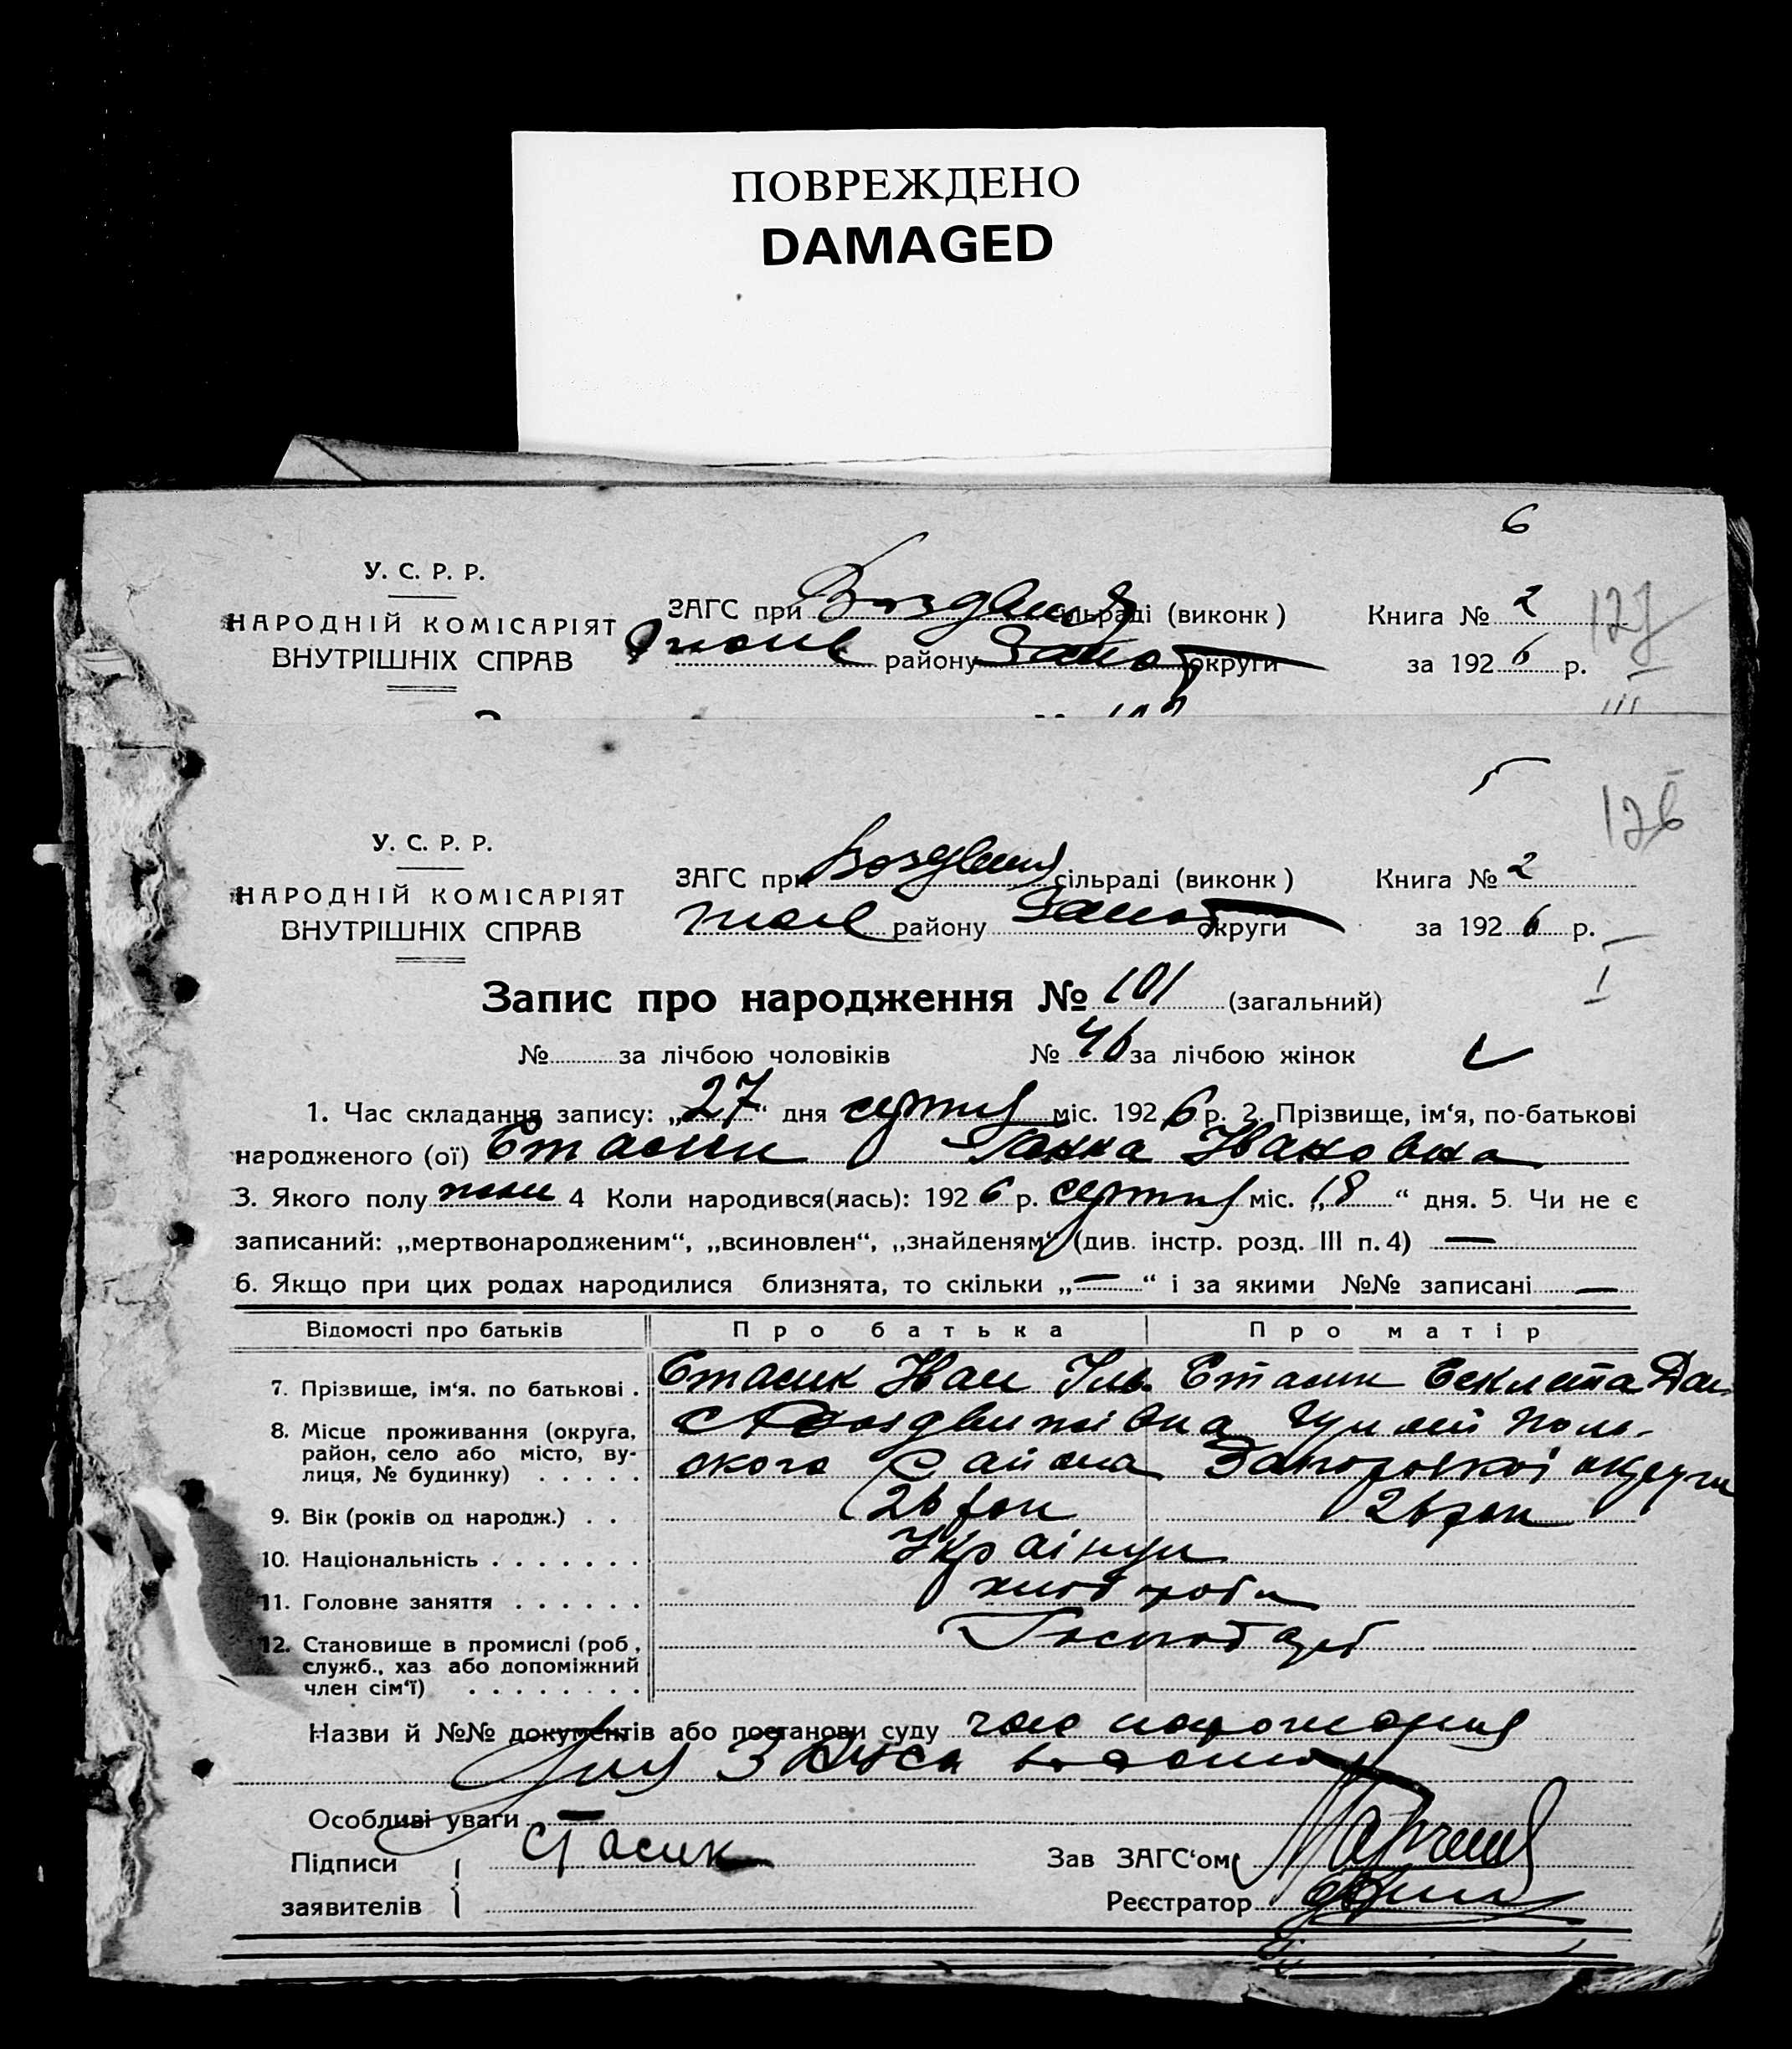 ПОВРЕЖДЕНО
DAMAGED
6
У. С. Р. Р.
НАРОДНІЙ КОМІСАРІЯТ
ВНУТРІШНІХ СПРАВ
ЗАГС при Воздвиж сільраді (виконк)
району Запор округи
Книга № 2
за 1926 р.
127
5
126
У. С. Р. Р.
НАРОДНІЙ КОМІСАРІЯТ
ВНУТРІШНІХ СПРАВ
ЗАГС при Воздвиж сільраді (виконк)
району Запор округи
Книга № 2
за 1926 р.
I
Запис про народження № 101 (загальний)
№ за лічбою чоловіків № 46 за лічбою жінок
1. Час складання запису: „27“ дня серпня міс. 1926 р. 2. Прізвище, ім‘я, по-батькові
народженого (ої) Стасик Ганна Івановна
3. Якого полу жін 4 Коли народився(лась): 1926 р. серпня міс. „18“ дня. 5. Чи не є
записаний: „мертвонародженим“, „всиновлен“, „знайденям“ (див. інстр. розд. III п. 4) —
6. Якщо при цих родах народилися близнята, то скільки „—“ і за якими №№ записані —
Відомості про батьків Про батька Про матір
7. Прізвище, ім‘я. по батькові . Стасик Иван Іль. Стасик Секлета Дан.
8. Місце проживання (округа, район, село або місто, вулиця, № будинку) . . . . . с Воздвижівка
ского Района Запорозької округи
9. Вік (років од народж.) . . 26 рок 26 рок
10. Національність . . . . . . . Українци
11. Головне заняття . . . . . . хлібороби
12. Становище в промислі (роб, служб., хаз або допоміжний член сім‘ї) . . . . . . . . Господарі
Назви й №№ документів або постанови суду
Особливі уваги —
Підписи заявителів { Стасик
Зав ЗАГС‘ом
Реєстратор